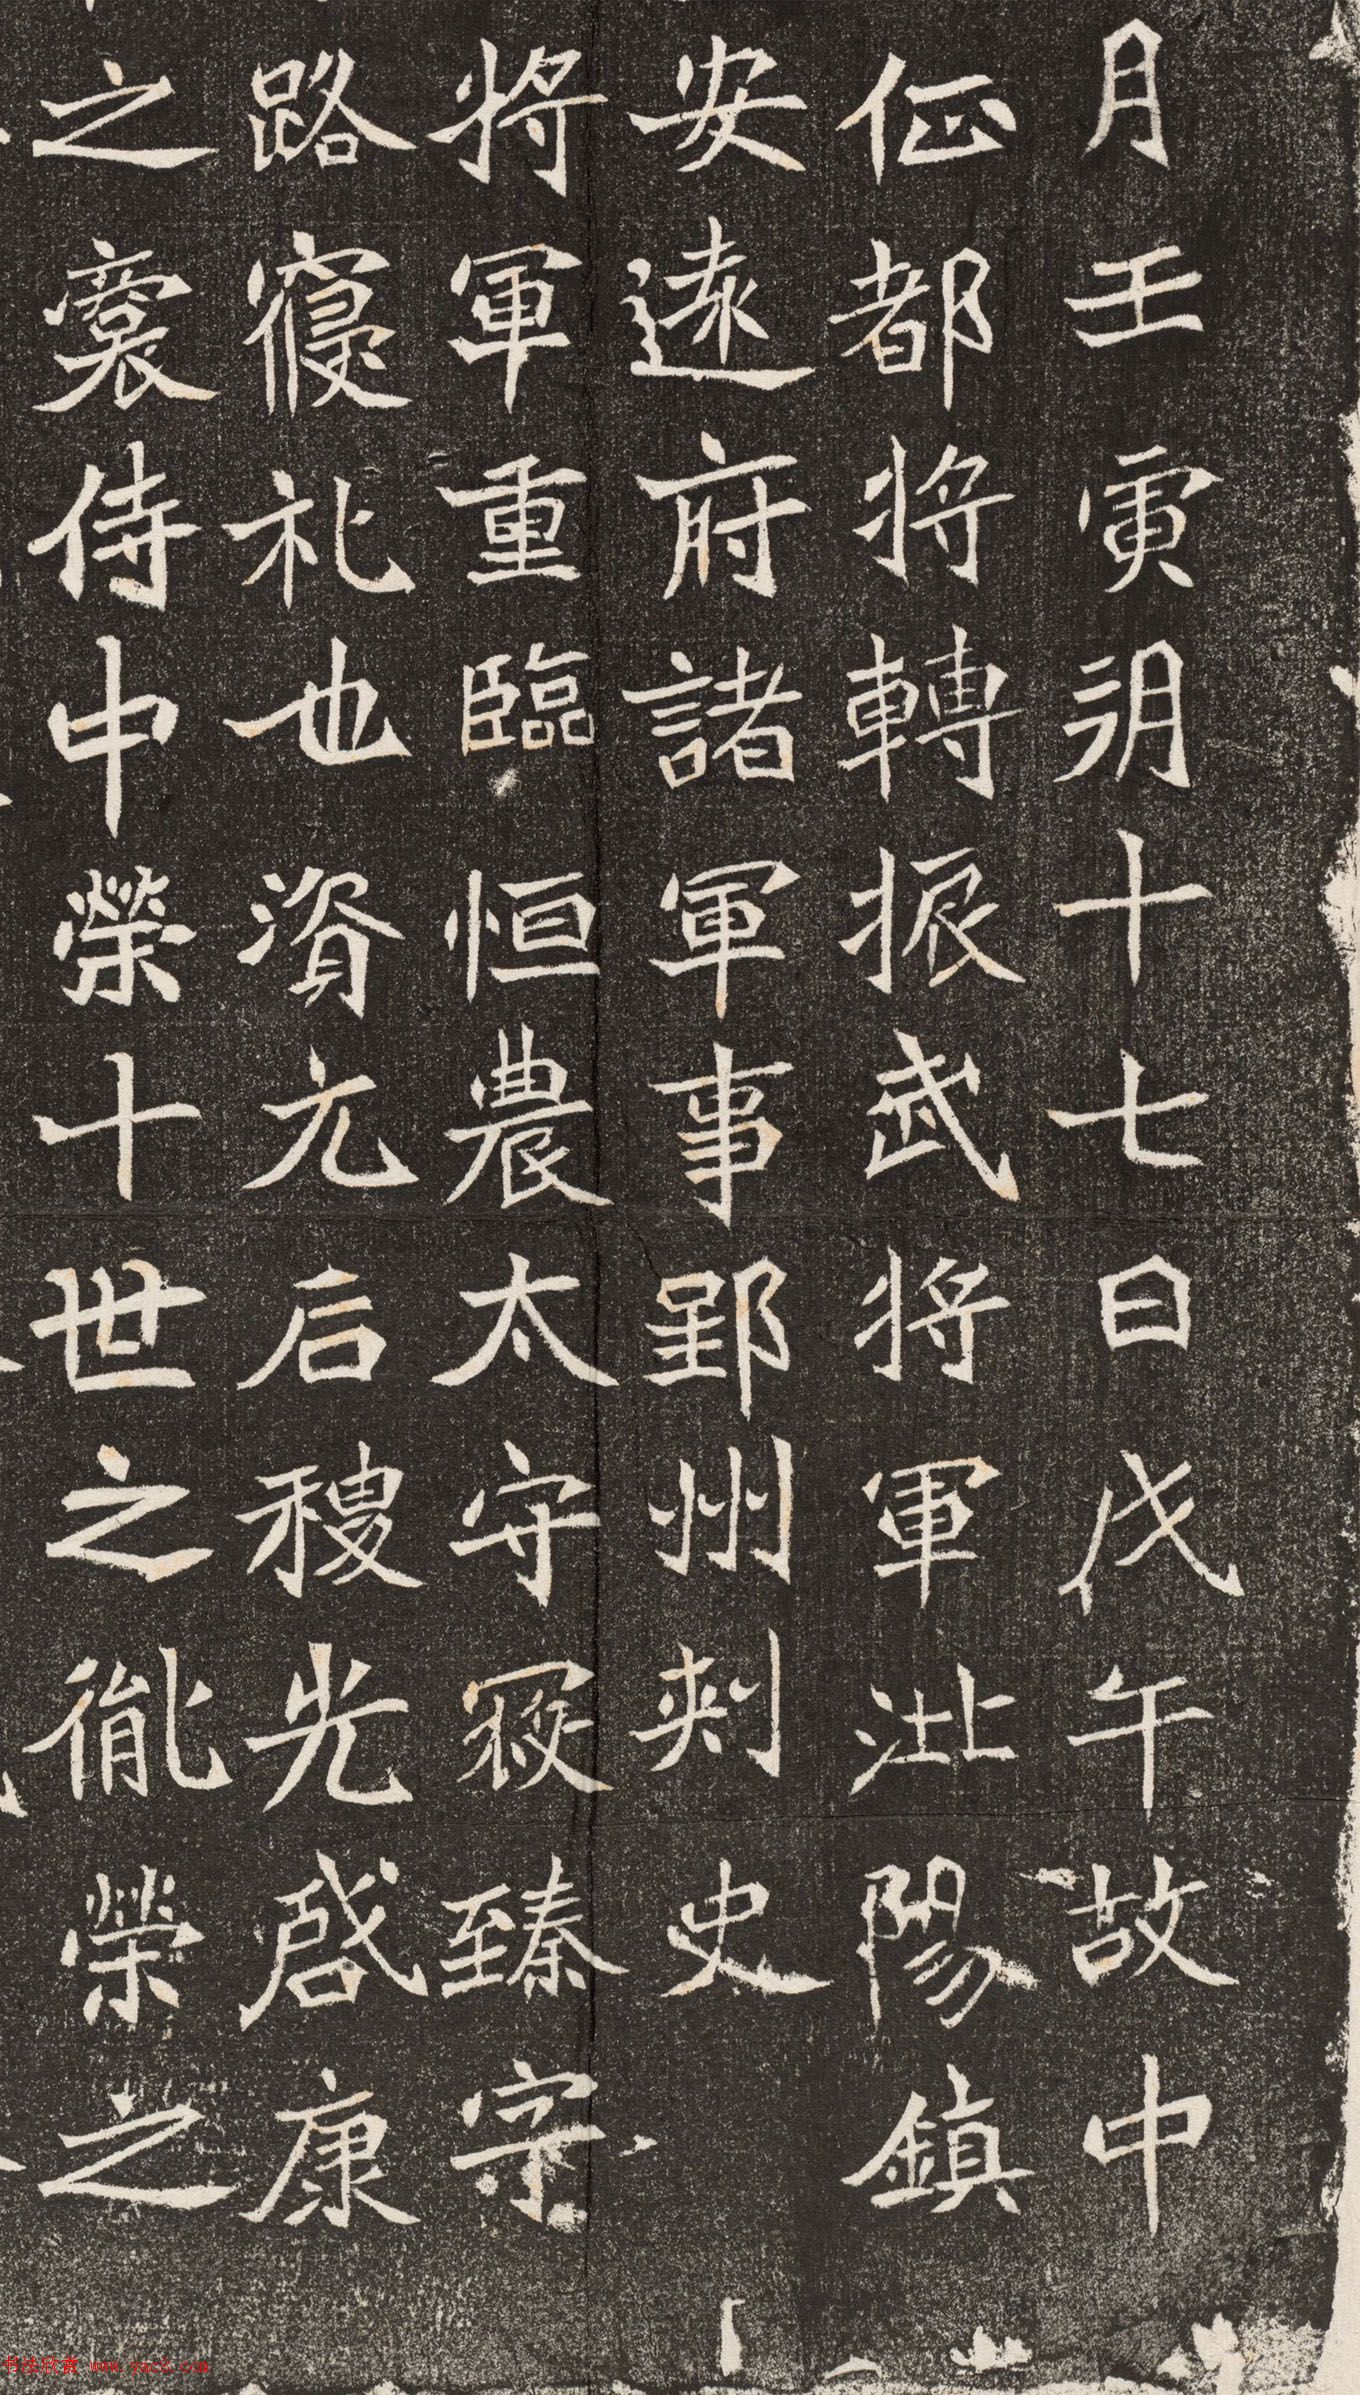 月壬寅朔十七日戊午故中
征都将轉振武将軍沘陽鎮
安遠府諸軍事郢州刺史
将軍重臨恒農太守寂臻宗
路寑礼也資元后稷光啓康
之裔侍中榮十世之胤榮之
书法欣赏 www.yac8.com